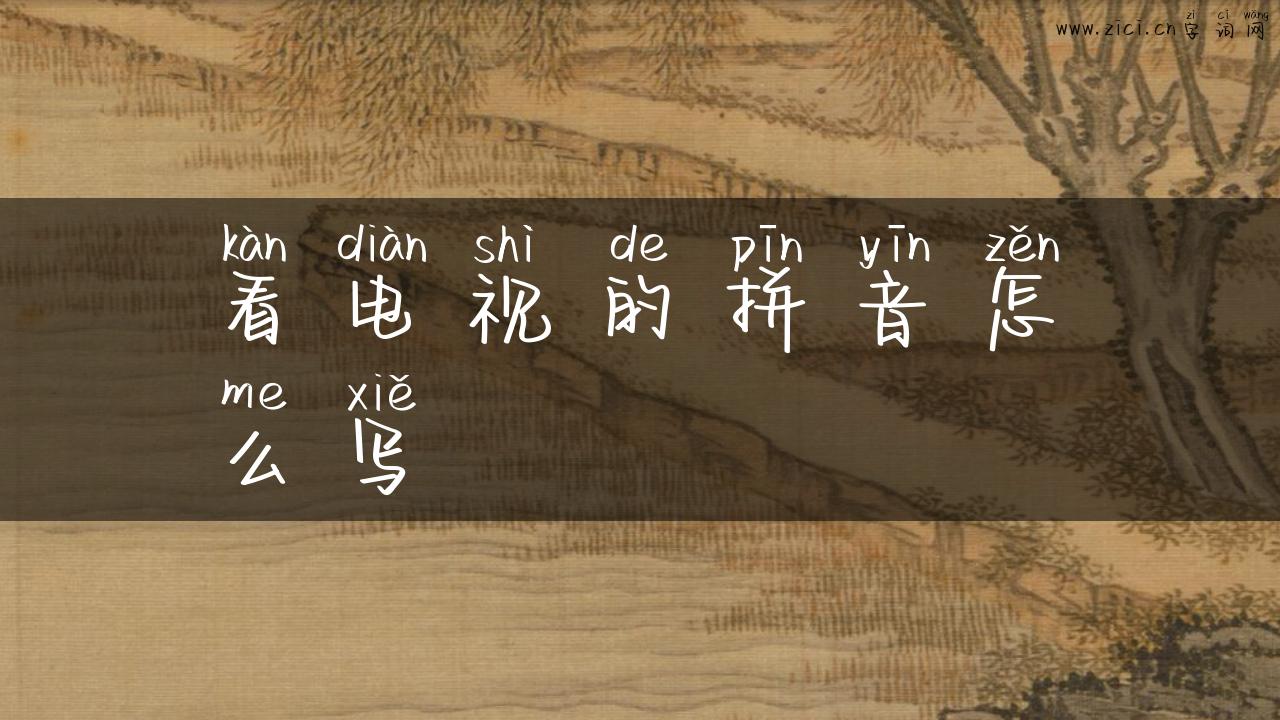 zì cí wǎng
www.zici.cn字词网
kàn diàn shì de pīn yīn zěn
看电视的拼音怎
me xiě
么写